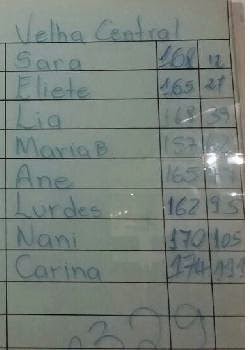 Velha Central
Sara 168 12
Eliete 165 21
Lia 168 39
Maria B 157
Ane 165
Lurdes 162 95
Nani 170 105
Carina 174
329